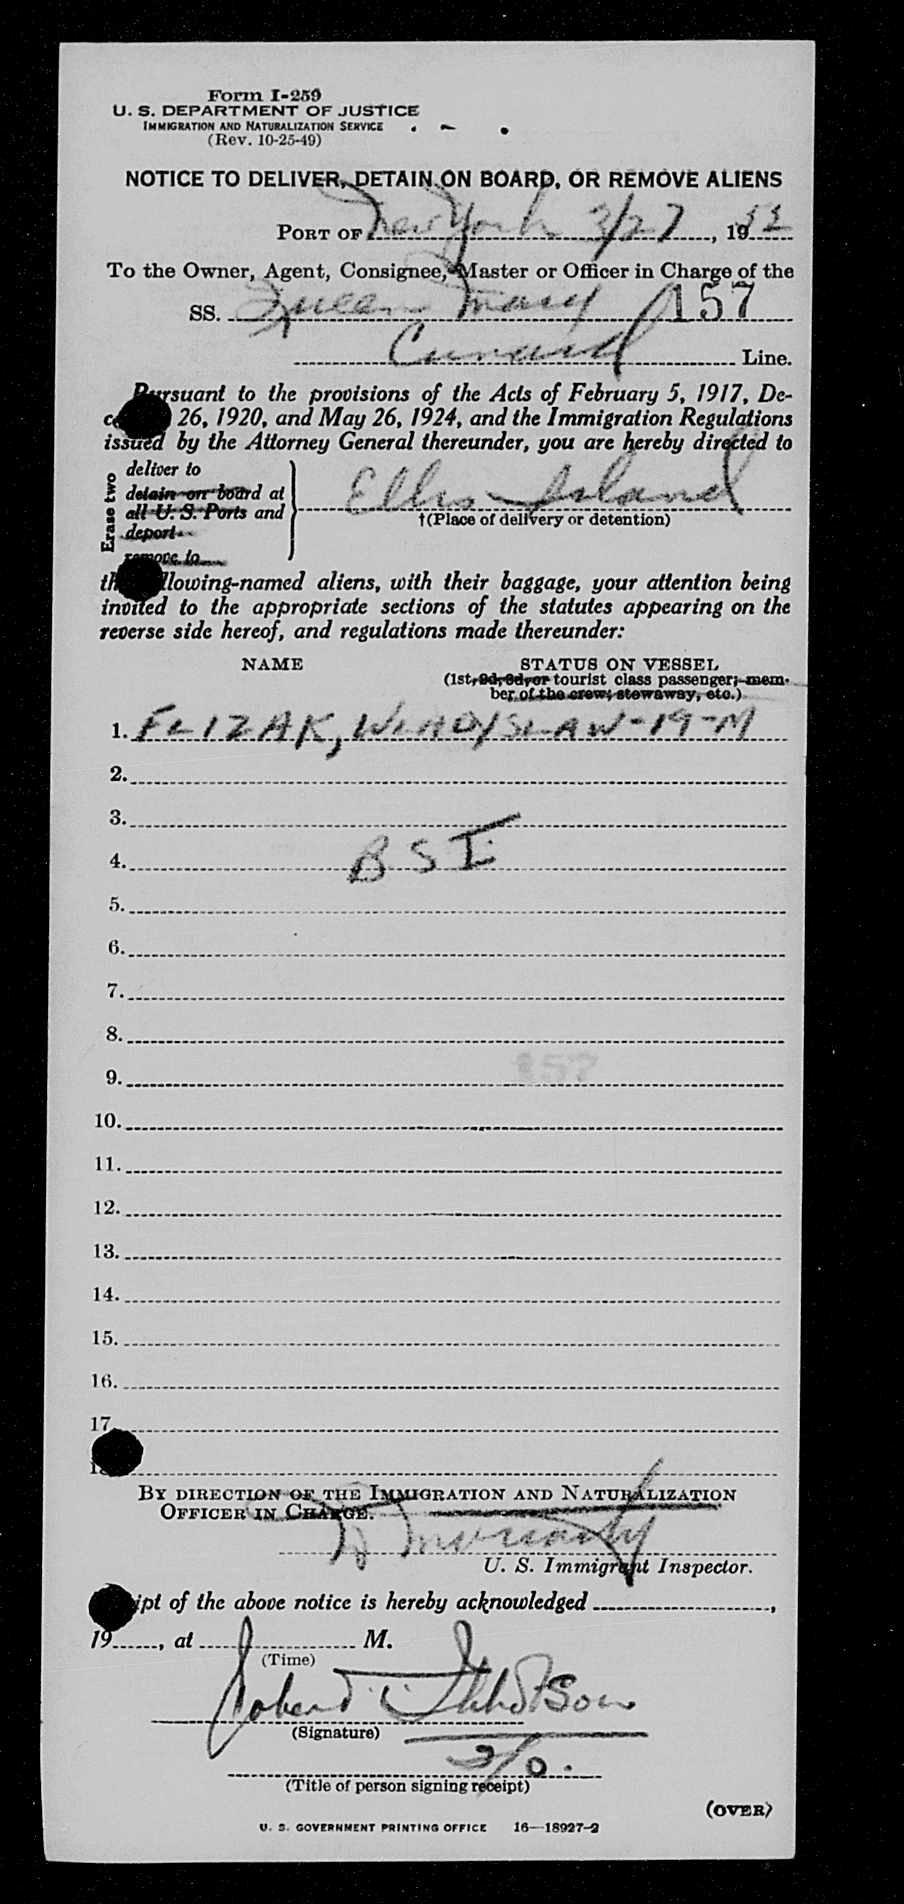 Form I-259
U. S. DEPARTMENT OF JUSTICE
IMMIGRATION AND NATURALIZATION SERVICE
(Rev. 10-25-49)
NOTICE TO DELIVER, DETAIN ON BOARD, OR REMOVE ALIENS
PORT OF New York 3/27, 1953
To the Owner, Agent, Consignee, Master or Officer in Charge of the
SS. Queen Mary 157
Cunard Line.
Pursuant to the provisions of the Acts of February 5, 1917, De-
26, 1920, and May 26, 1924, and the Immigration Regulations
issued by the Attorney General thereunder, you are hereby directed to
Erase two
deliver to
detain on board at
all U. S. Ports and
deport
remove to
Ellis Island
†(Place of delivery or detention)
following-named aliens, with their baggage, your attention being
invited to the appropriate sections of the statutes appearing on the
reverse side hereof, and regulations made thereunder:
NAME STATUS ON VESSEL
(1st, 2d, 3d, or tourist class passenger; mem-
ber of the crew; stowaway, etc.)
1. FLIZAK, WLADYSLAW-19-M
2.
3.
4. BSI
5.
6.
7.
8.
9. 157
10.
11.
12.
13.
14.
15.
16.
17.
BY DIRECTION OF THE IMMIGRATION AND NATURALIZATION
OFFICER IN CHARGE.
Moriarty
U. S. Immigrant Inspector.
of the above notice is hereby acknowledged ,
19 , at M.
(Time)
Robert Ibbotson
(Signature)
2/0.
(Title of person signing receipt)
(OVER)
U. S. GOVERNMENT PRINTING OFFICE 16—18927-2